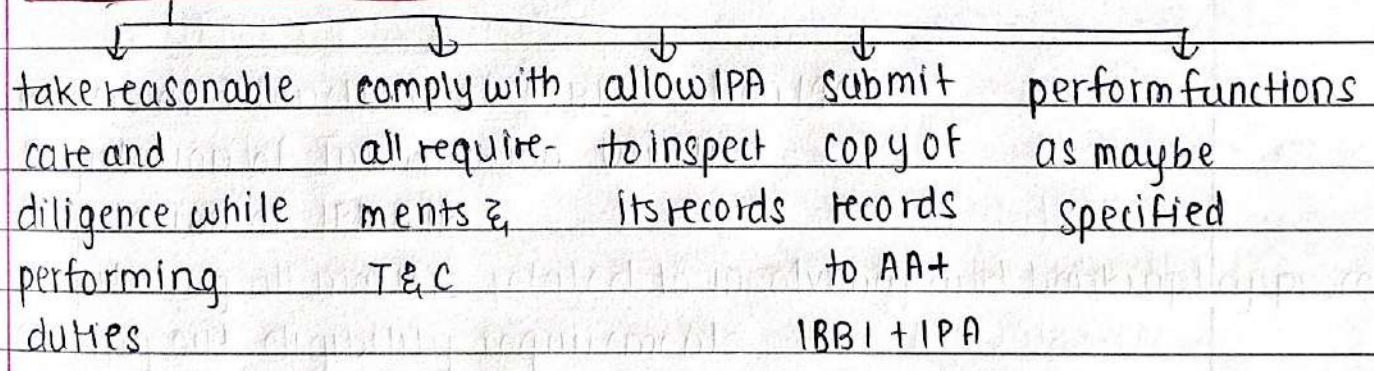 take reasonable
care and
diligence while
performing
duties
comply with
all require-
ments &
T & C
allow IPA
to inspect
its records
submit
copy of
records
to AA+
IBBI + IPA
perform functions
as maybe
specified